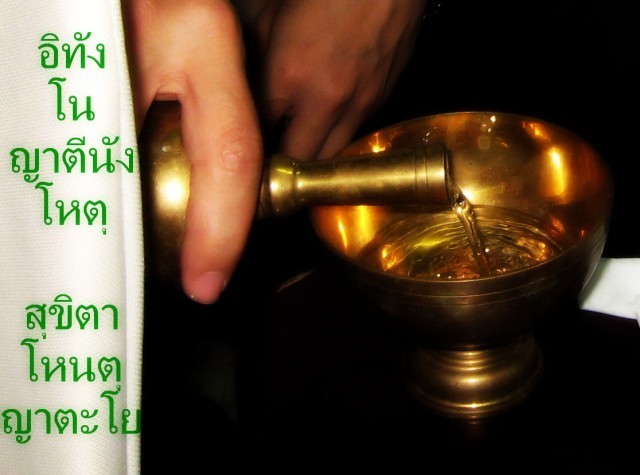 อิทัง
โน
ญาตีนัง
โหตุ
สุขิตา
โหนตุ
ญาตะโย